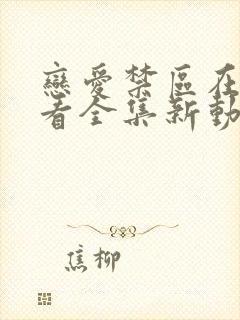 戀愛禁區在
看全集新動
焦柳